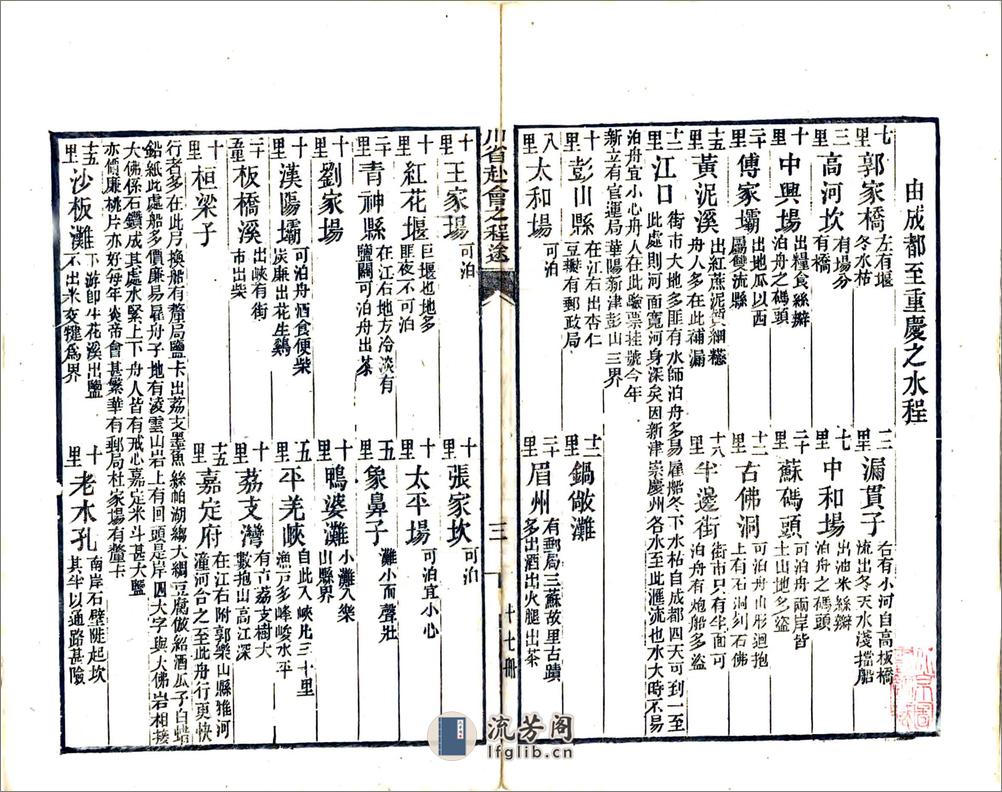 由成都至重慶之水程
七里 郭家橋 左有堰冬水枯
三里 高河坎 有場分有橋
十里 中興場 出糧食絲辮泊舟之碼頭
二十里 傅家壩 出地瓜以西屬雙流縣
十五里 黃泥溪 出紅蔗泥質細糍舟人多在此補漏
十二里 江口 街市大地多匪有水師泊舟多易雇船冬下水枯自成都四天可到一至
此處則河面寬河身深矣因新津崇慶州各水至此滙流也水大時不易
泊舟宜小心舟人在此驗票挂號今年
新立有官運局華陽新津彭山三界
十里 彭山縣 在江右出杏仁豆瓣有郵政局
八里 太和場 可泊
三里 漏貫子 右有小河自高板橋流出冬天水淺擋船
七里 中和場 出池米絲辮泊舟之碼頭
二十里 蘇碼頭 可泊舟兩岸皆土山地多盜
十二里 古佛洞 可泊舟山形迴抱上有石洞刻石佛
十八里 半邊街 街市只有半面可泊舟有炮船多盜
十二里 鍋敞灘
二十里 眉州 有郵局三蘇故里古蹟多出酒出火腿出茶
川省赴會之程途
三
十七冊
十里 王家場 可泊
十里 紅花堰 巨堰也地多匪夜不可泊
二十里 青神縣 在江右地方冷淡有鹽關可泊舟出茶
十里 劉家場
十里 漢陽壩 可泊舟酒食便柴炭廉出花生鷄
五里 板橋溪 出峽有街市出柴
十里 桓梁子
十里 張家坎 可泊
十里 太平場 可泊宜小心
五里 象鼻子 灘小而聲壯
十里 鴨婆灘 小灘入樂山縣界
五里 平羌峽 自此入峽凡三十里漁戶多峰峻水平
十里 荔支灣 有古荔支樹大數抱山高江深
十五里 嘉定府 在江右附郭樂山縣雅河潼河合之至此舟行更快
行者多在此另換船有釐局鹽卡出荔支墨魚絲帕湖縐大綢豆腐倣紹酒瓜子白蜡
鉛紙此處船多價廉易雇舟子地有凌雲山岩上有回頭是岸四大字與大佛岩相接
大佛係石鑿成其處水緊上下舟人皆有戒心嘉定米斗甚大鹽
亦價廉桃片亦好每年炎帝會甚繁華有郵局杜家場有釐卡
十五里 沙板灘 下游即牛花溪出鹽不出米交犍為界
十里 老木孔 南岸石壁陡起坎其半以通路甚險
流芳閣
lfglib.cn